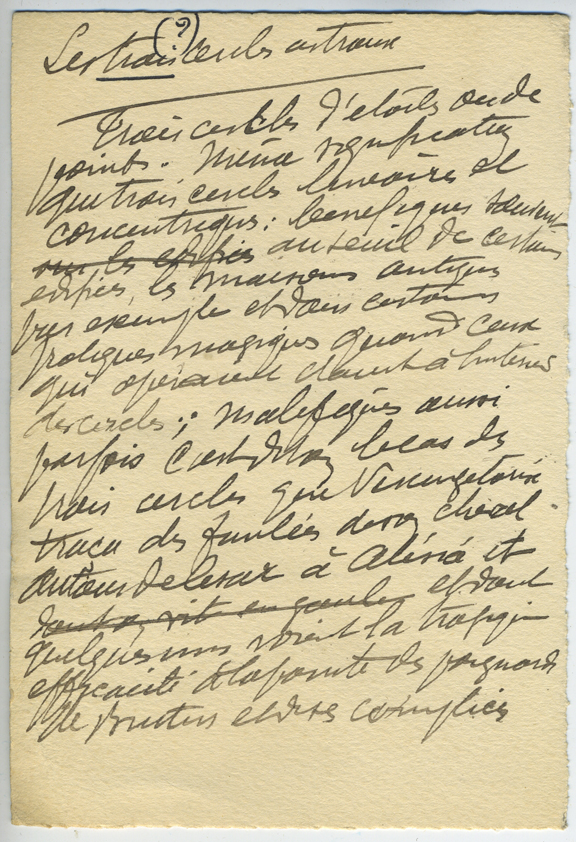 (?)
Les trois cercles astraux
Trois cercles d'étoiles ou de
points. Même signification
que trois cercles linéaires et
concentriques : bénéfiques souvent
sur les édifices au seuil de certains
édifices, les maisons antiques
par exemple et dans certaines
pratiques magiques quand ceux
qui opéraient étaient à l'intérieur
des cercles ; maléfiques aussi
parfois c'est le cas des
trois cercles que Vercingétorix
traça des foulées de son cheval
autour de César à Alésia et
dont on vit en Gaule et dont
quelques uns voient la tragique
efficacité à la pointe des poignards
de Brutus et de ses complices